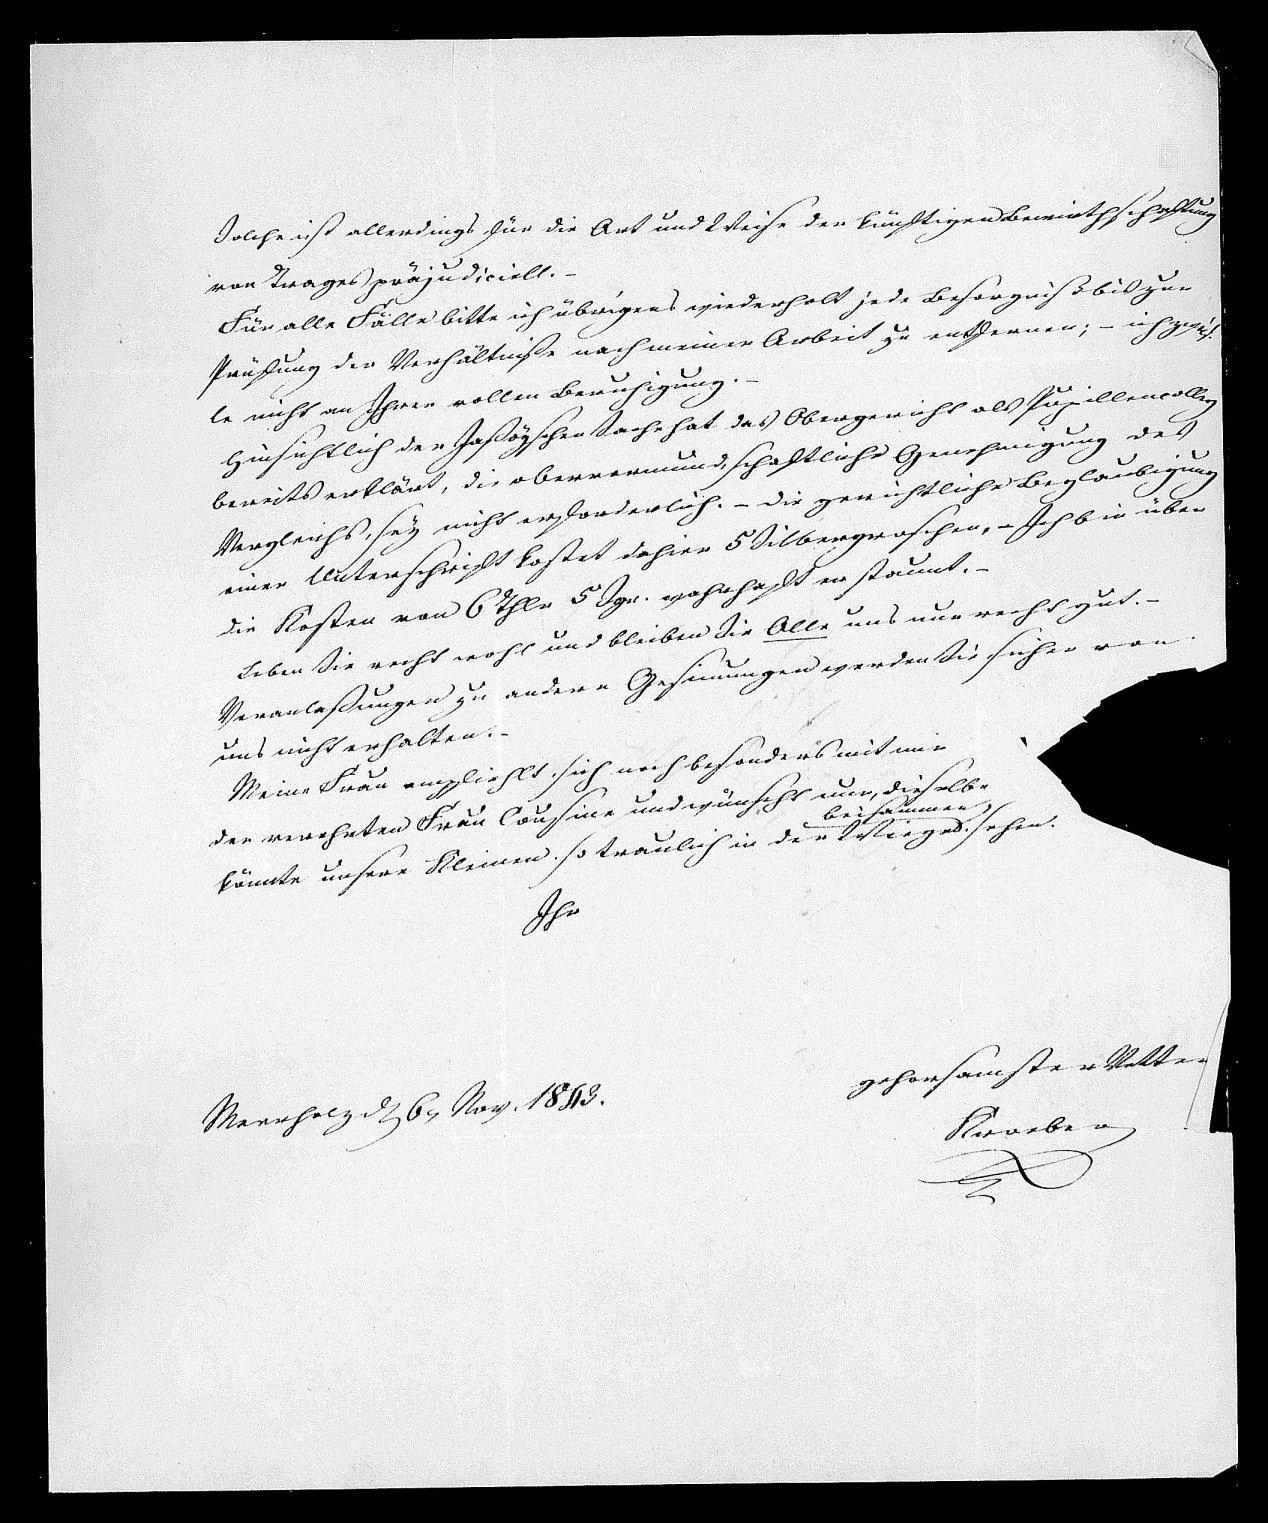 Solche ist allerdings für die Art und Weise der künftigen Bewirthschaftung
von Trages präjudiciell. –
Für alle Fälle bitte ich übrigens wiederholt jede Besorgniß bis zur
Prüfung der Verhältniße nach meiner Arbeit zu entfernen; – ich zweif-
le nicht an Ihrer vollen Beruhigung. –
Hinsichtlich der Jaßoyschen Sache hat das Obergericht als Pupillencolleg
bereits erklärt, die obervormundschaftliche Genehmigung des
Vergleichs, sey nicht erforderlich. – Die gerichtliche Beglaubigung
einer Unterschrift kostet dahier 5 Silbergroschen, – Ich bin über
die Kosten von 6 Thlr 5 Sgr. wahrhaft erstaunt. –
Leben Sie recht wohl und bleiben Sie Alle uns nur recht gut. –
Veranlaßungen zu andern Gesinnungen werden Sie sicher von
uns nicht erhalten. –
Meine Frau empfiehlt sich noch besonders mit mir
der verehrten Frau Cousine und wünscht nur, dieselbe
könnte unsere Kleinen so traulich in der Wiege beisammen sehen.
Ihr
gehorsamster Vetter
Meerholz d 6 Nov. 1843.
Kroeber